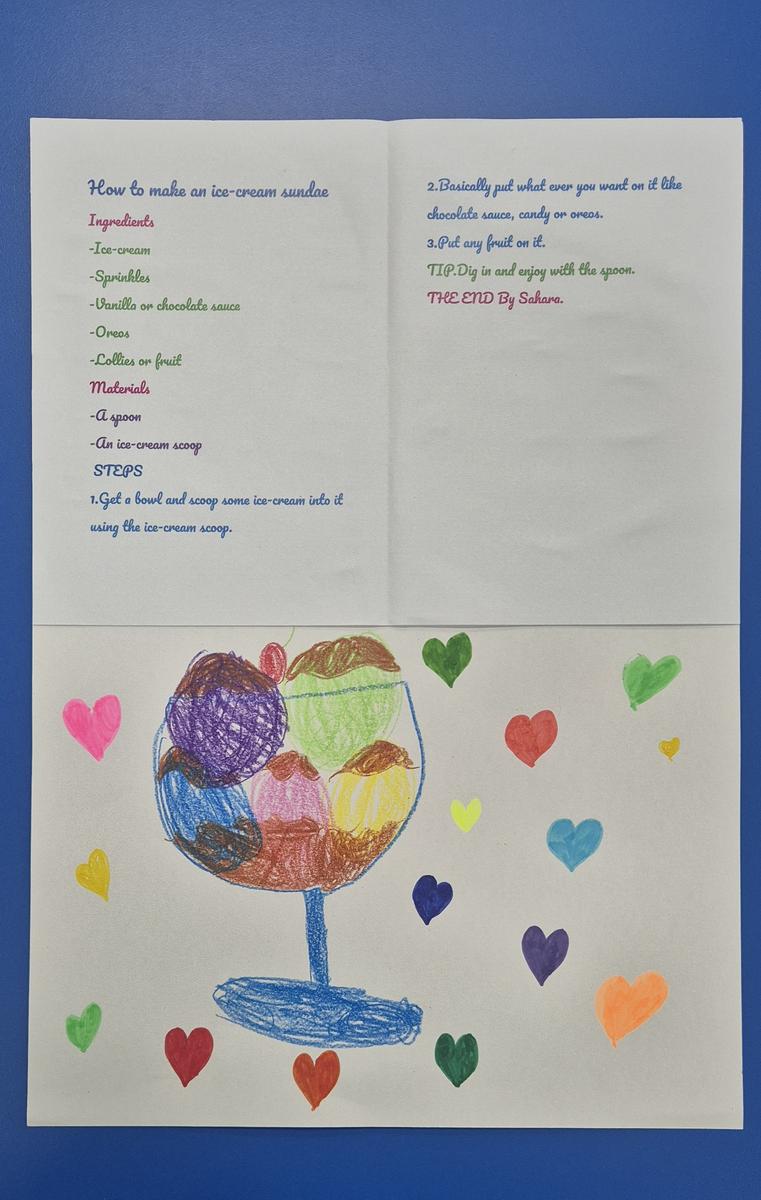 How to make an ice-cream sundae
Ingredients
-Ice-cream
-Sprinkles
-Vanilla or chocolate sauce
-Oreos
-Lollies or fruit
Materials
-A spoon
-An ice-cream scoop
STEPS
1.Get a bowl and scoop some ice-cream into it
using the ice-cream scoop.
2.Basically put what ever you want on it like
chocolate sauce, candy or oreos.
3.Put any fruit on it.
TIP.Dig in and enjoy with the spoon.
THE END By Sahara.